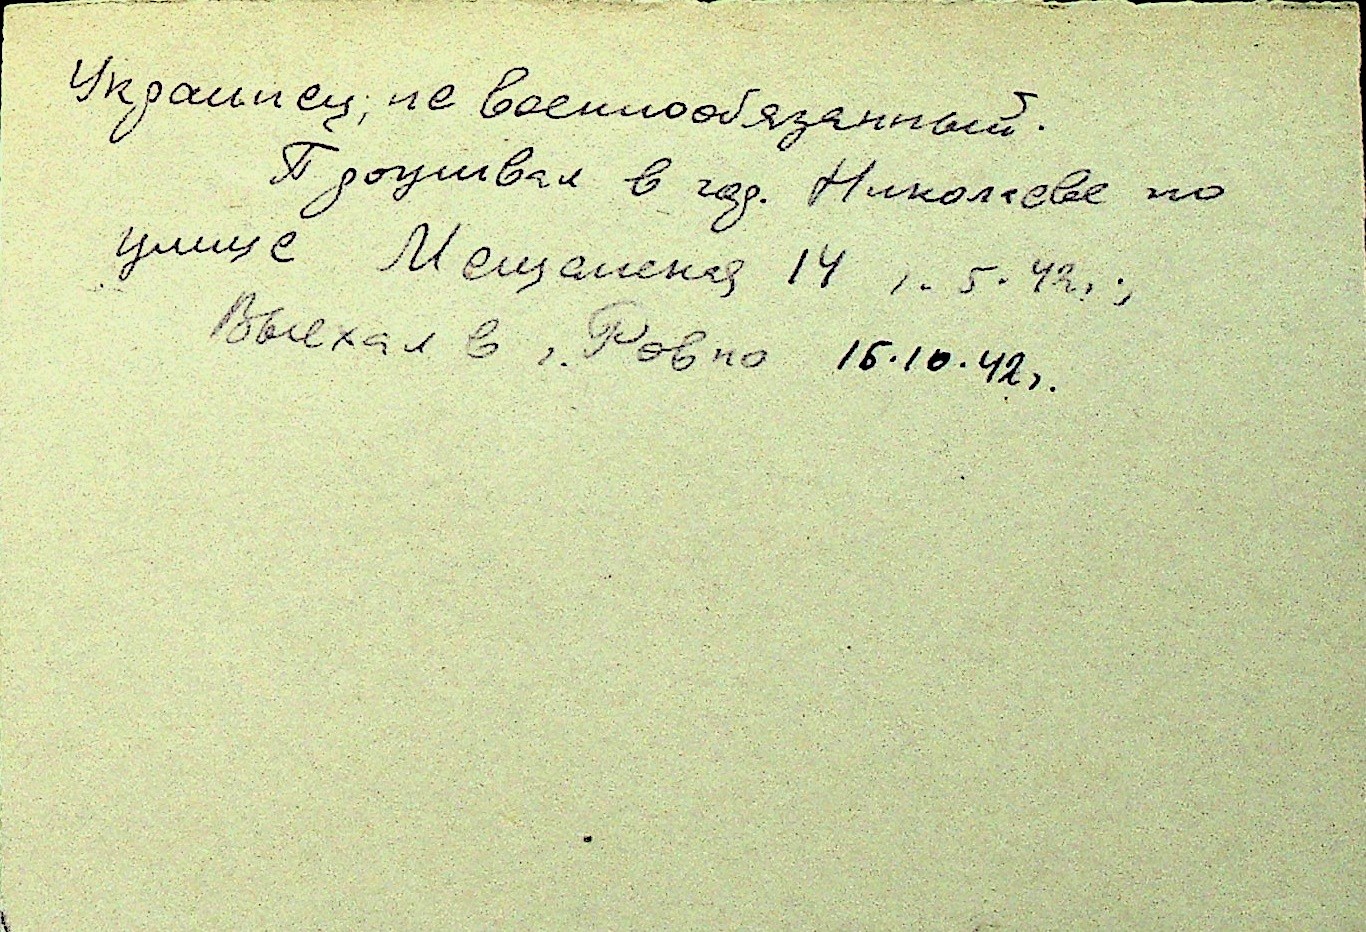 Украинец, не военнообязанный.
Проживал в гор. Николаеве по
улице Мещанская 14 1.5.42г.,
Выехал в г. Ровно 15.10.42г.